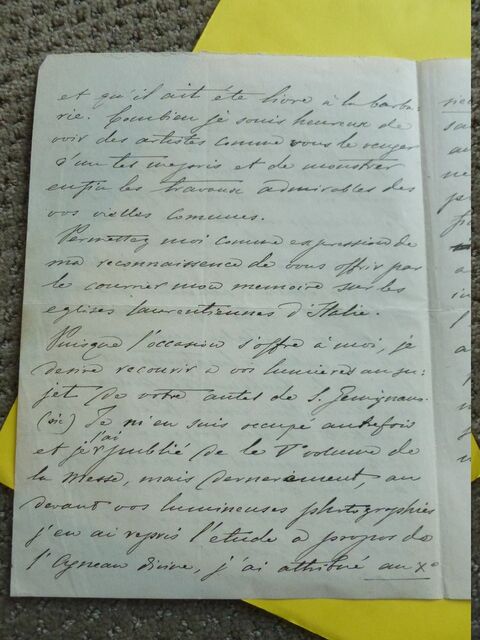 et qu'il ait été livré à la barba-
rie. Combien je souis heureux de
voir des artistes comme vous le venger
d'un tel mepris et de monstrer
enfin les travaux admirables des
vos vielles Communes.
Permettez moi comme expression de
ma reconnaissence de vous offrir par
le courrier mon memoire sur les
eglises laurentiennes d'Italie.
Puisque l'occasion s'offre à moi, je
desire recourir a vos lumieres au su-
jet de votre autel de S. Gemignano.
(sic) Je m'en suis occupé autrefois
et je l'ai publié de le Ve volume de
la Messe, mais dernierement au
devant vos lumineuses photographies
j'en ai repris l'etude a propos de
l'Agneau divine, j'ai attribué au Xe